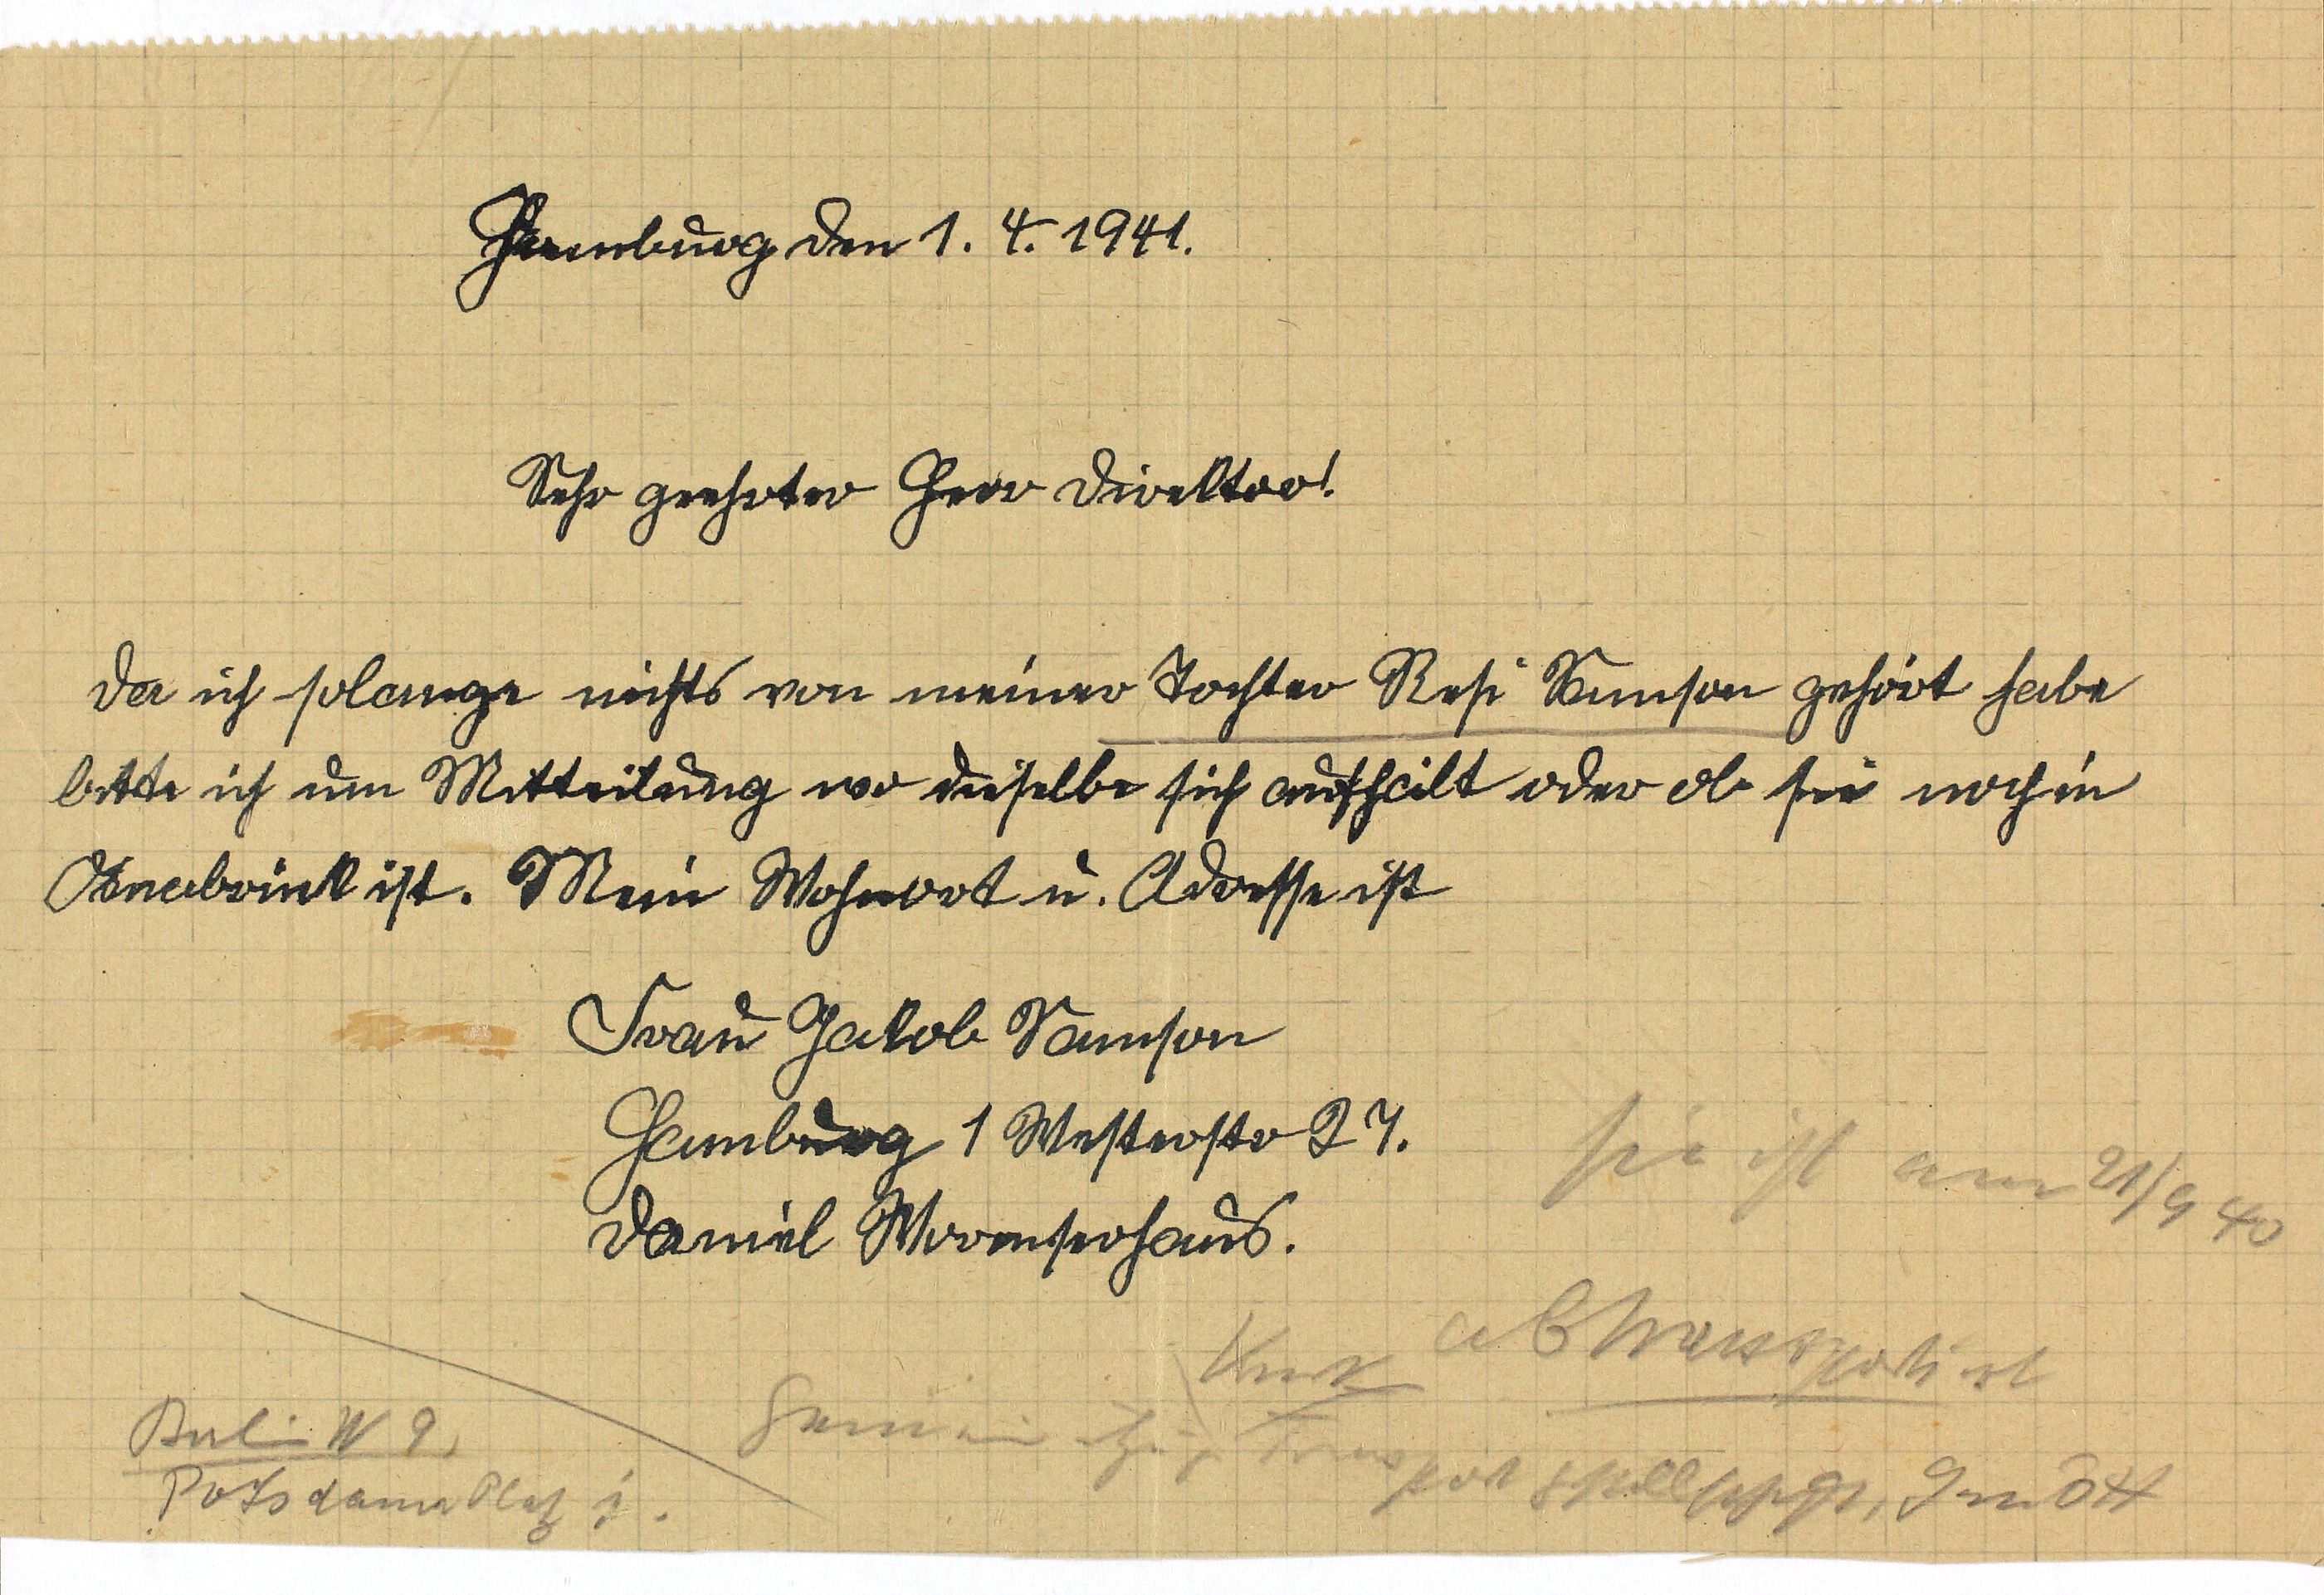 Hamburg den 1. 4. 1941.
Sehr geehrter Herr Direktor!
Da ich solange nichts von meiner Tochter Resi Samson gehört habe
bitte ich um Mitteilung wo dieselbe sich aufhält oder ob sie noch in
Osnabrück ist. Mein Wohnort u. Adresse ist
Frau Jakob Samson
Hamburg 1 Westerstr 27.
Daniel Wormserhaus.
sie ist am 21/9 40
abtransportiert
Gemeinnützige Transport GmbH
Berlin W 9.
Potsdamer Platz 1.